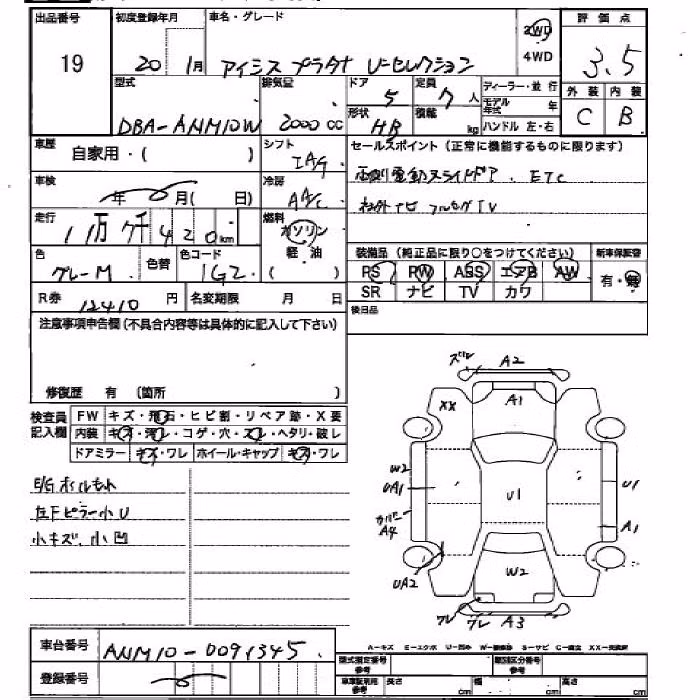 出品番号
19
初度登録年月
20 1月
車名・グレード
アイシス プラタナ Uーセレクション
2WD
4WD
評価点
3.5
外装 内装
C B
型式
DBA-ANM10W
排気量
2000 cc
ドア
5
形状
HB
定員
7 人
積載
kg
ディーラー・並行
モデル年式 年
ハンドル 左・右
車歴
自家用・( )
シフト
IAT
セールスポイント(正常に機能するものに限ります)
両側電動スライドドア. ETC
社外ナビ フルセグTV
車検
年 月( 日)
冷房
AAC
走行
11万 7千 420 km
燃料
ガソリン
軽・油
( )
色
グレーM
色替
色コード
1G2
装備品(純正品に限り○をつけてください)
新車保証書
PS PW ABS エアB AW
有・無
SR ナビ TV カワ
R券 12410 円
名変期限 月 日
後日品
注意事項申告欄(不具合内容等は具体的に記入して下さい)
修復歴 有 (箇所 )
検査員記入欄
FW キズ・飛石・ヒビ割・リペア跡・X要
内装 キズ・汚レ・コゲ・穴・スレ・ヘタリ・破レ
ドアミラー キズ・ワレ ホイール・キャップ キズ・ワレ
E/Gオイルもれ
左Fピラー小U
小キズ、小凹
ズレ A2
XX
A1
W2
UA1
カバー
A4
U1
U1
A1
UA2
W2
ワレ ワレ A3
車台番号
ANM10-0091345
登録番号
A−キズ E−エクボ U−凹み W−補修跡 S−サビ C−腐食 XX−交換済
型式指定番号
参考
類別区分番号
参考
車庫証明用
参考
長さ cm
幅 cm
高さ cm